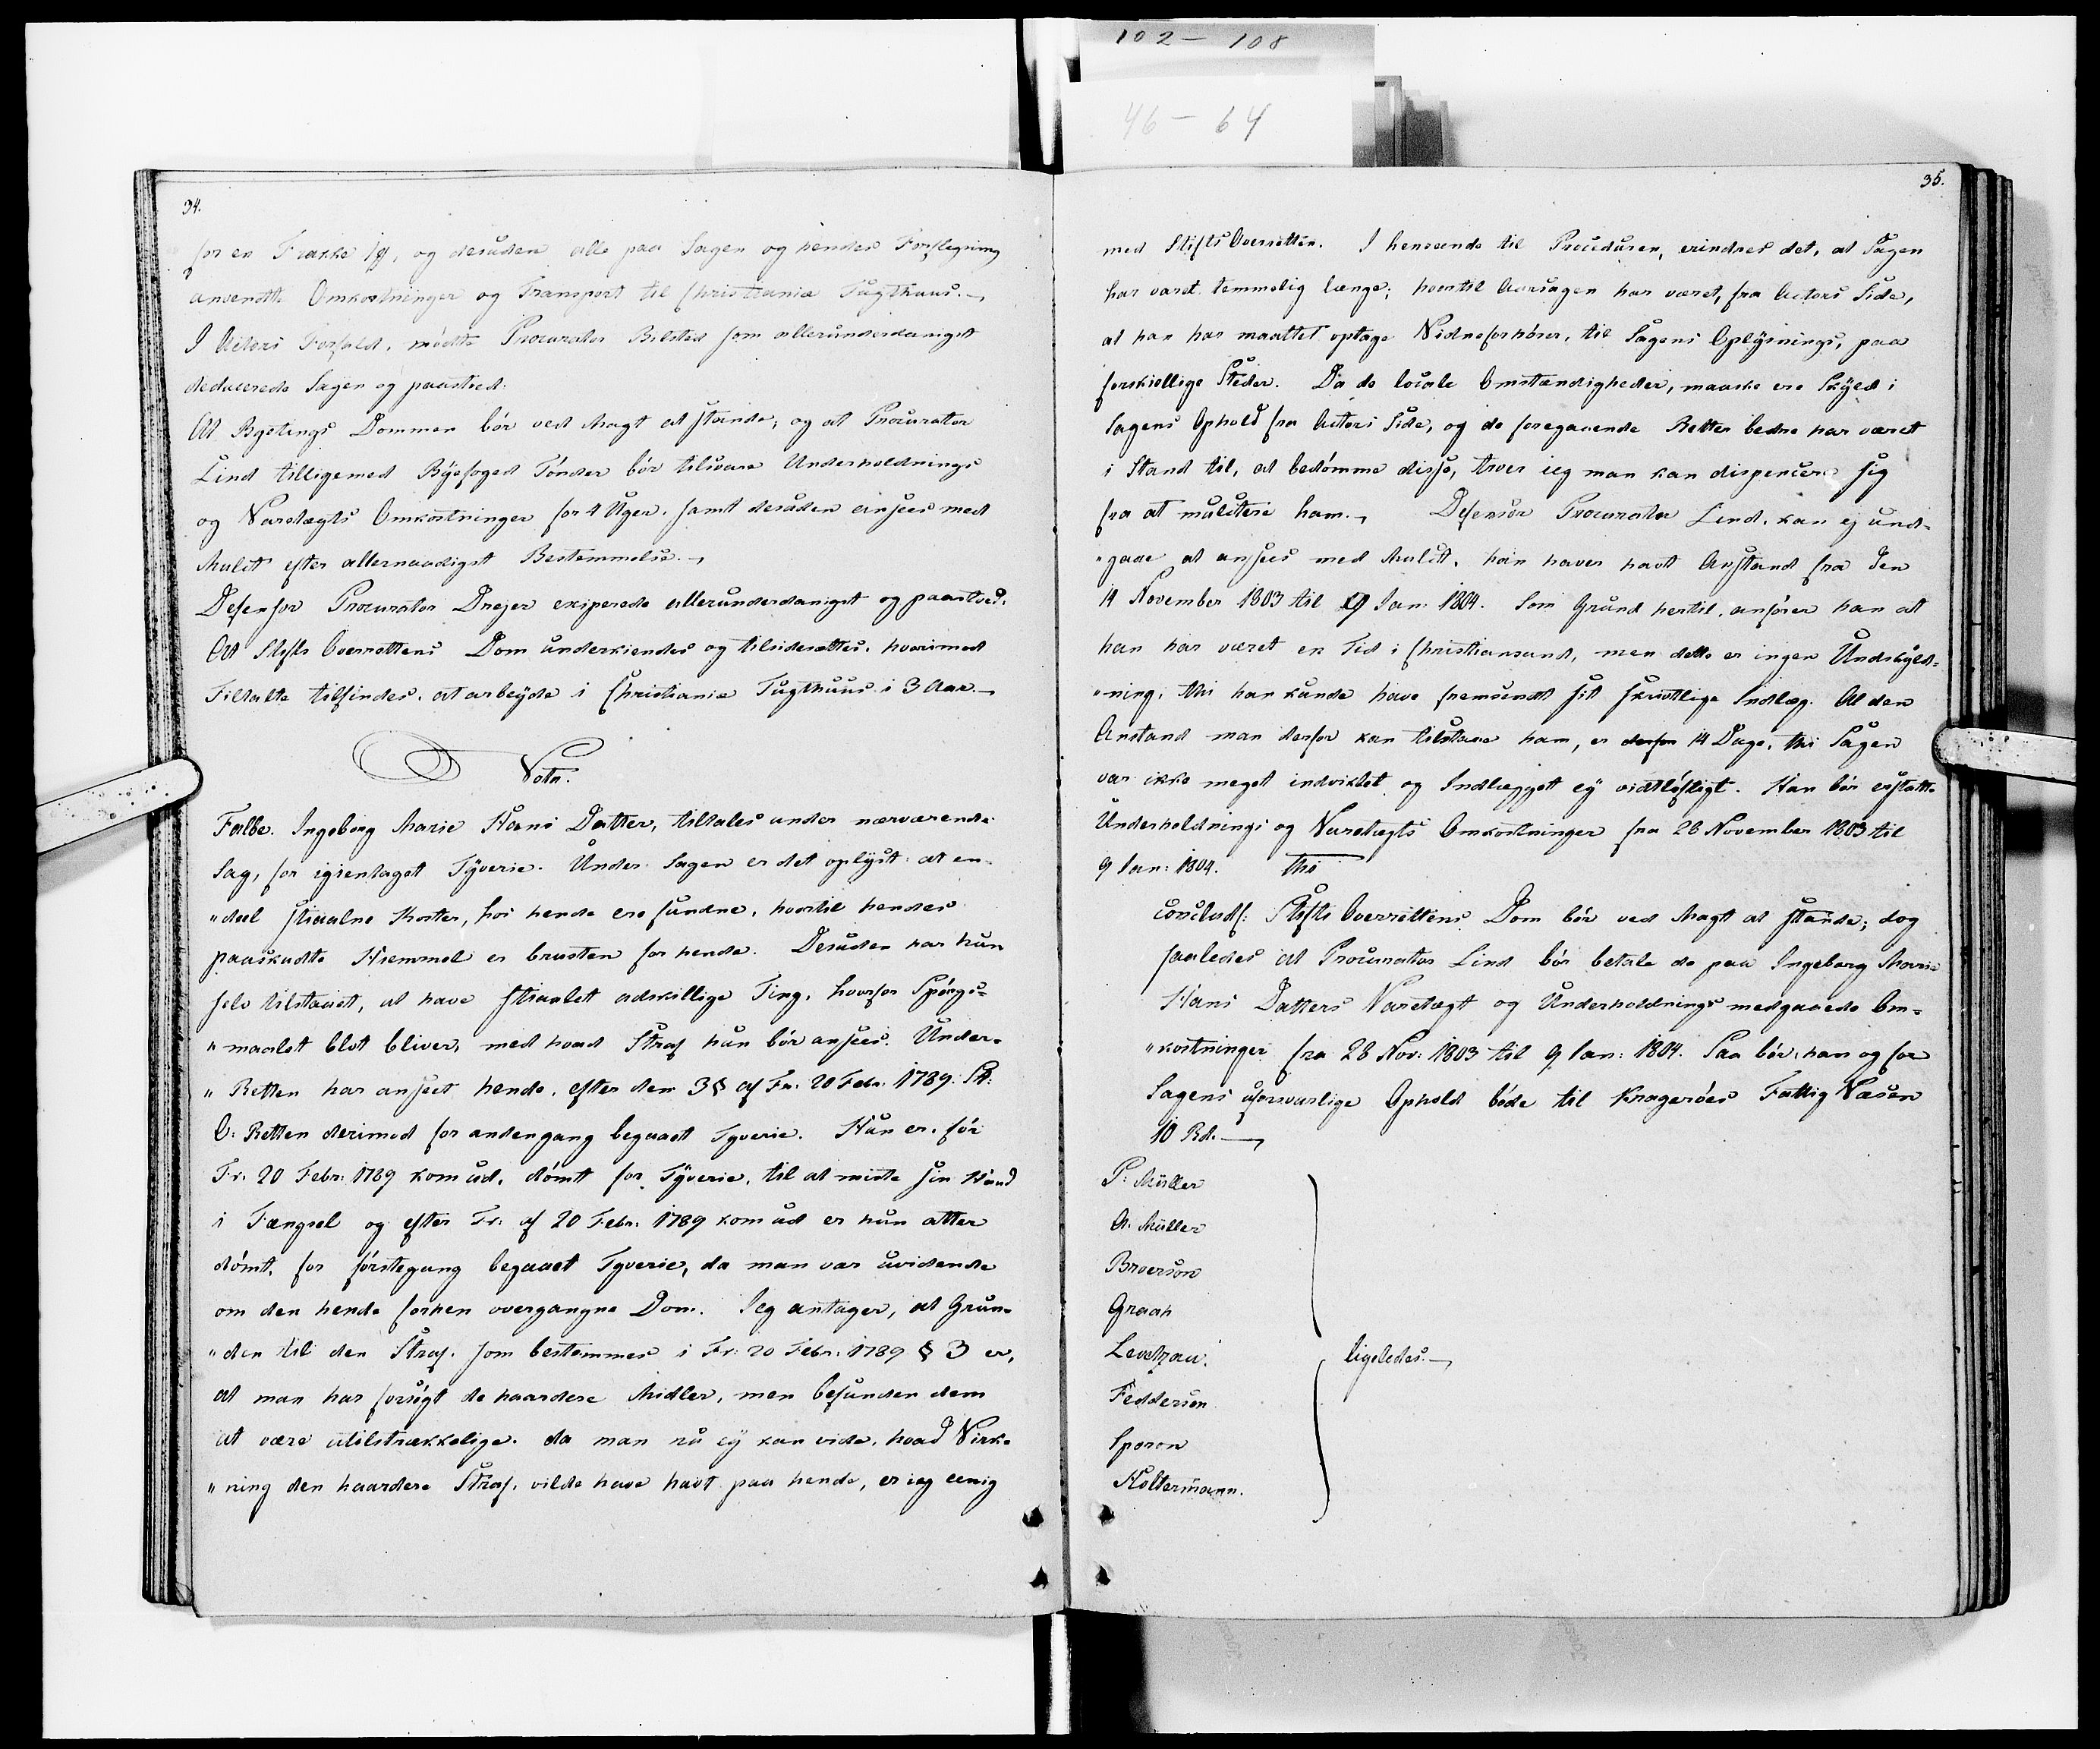 102 - 108
46 - 64
34.
for en Frakke 1 , og desuden alle paa Sagen og hendes Forflegning
anvendte Omkostninger og Transport til Christiania Tugthuus.
I Actors Forfald, mødte Procurator Bilsted som allerunderdanigst
deducerede Sagen og paastod:
At Bytings Dommen bør ved Magt at stande, og at Procurator
Lind tilligemed Byefoged Tønder bør tilsvare Underholdnings
og Varetægts Omkostninger for 4 Uger, samt desuden ansees med
Mulct efter allernaadigst Bestemmelse.
Defensor Procurator Drejer exiperede allerunderdanigst og paastod:
At Stifts Overrettens Dom underkiendes og tilsidesættes, hvorimod
Tiltalte tilfindes, at arbeyde i Christiania Tugthuus i 3 Aar.
Vota.
Falbe. Ingeborg Marie Hans Datter, tiltales under nærværende
Sag, for igientaget Tyverie. Under Sagen er det oplyst at en
"deel stiaalne Koster, hos hende ere fundne, hvortil hendes
paaskudte Hiemmel er brusten for hende. Desuden har hun
selv tilstaaet, at have stiaalet adskillige Ting, hvorfor Spørgs-
"maalet blot bliver, med hvad Straf hun bør ansees. Under-
"Retten har anseet hende, efter den 3 § af Fr. 20 Febr. 1789. St:
O: Retten derimod for andengang begaaet Tyverie. Hun er, før
Fr: 20 Febr: 1789 kom ud, dømt for Tyverie, til at miste sin Hud
i Fængsel og efter Fr: af 20 Febr. 1789 kom ud er hun atter
dømt, for førstegang begaaet Tyverie, da man var uvidende
om den hende forhen overgangne Dom. Jeg antager, at Grun-
"den til den Straf, som bestemmes i Fr: 20 Febr: 1789 § 3 er,
at man har forsøgt de haardere Midler, men befunden dem
at være utilstrækkelige. da man nu ey kan vide, hvad Virk-
"ning den haardere Straf, vilde have havt paa hende, er ieg eenig
35.
med Stifts Overretten. I henseende til Proceduren, erindres det, at Sagen
har varet temmelig længe; hvortil Aarsagen har været, fra Actors Side,
at han har maattet optage Vidneforhører, til Sagens Oplysnings, paa
forskiellige Steder. Da de locale Omstændigheder, maaske ere Skyld i
Sagens Ophold fra Actors Side, og de foregaaende Retter bedre har været
i Stand til, at bedømme disse, troer ieg man kan dispencere sig
fra at mulctere ham. Defensor Procurator Lind, kan ej und-
"gaae at ansees med Mulct, han haver havt Anstand fra den
14 November 1803 til 9 Jan: 1804. Som Grund hertil, anfører han at
han har været en Tid i Christiansand, men dette er ingen Undskyld-
"ning; thi han kunde have fremsendt sit skriftlige Indlæg. Al den
Anstand man derfor kan tilstaae ham, er derfor 14 Dage, thi Sagen
var ikke meget indviklet og Indlægget ey vidtløftigt. Han bør erstatte
Underholdnings og Varetægts Omkostninger fra 28 November 1803 til
9 Jan: 1804. Thi
concluds: Stifts Overrettens Dom bør ved Magt at stande; dog
saaledes at Procurator Lind bør betale de paa Ingeborg Marie
Hans Datters Varetægt og Underholdnings medgaaede Om-
"kostninger fra 28 Nov: 1803 til 9 Jan: 1804. Saa bør han og for
Sagens uforsvarlige Ophold bøde til Kragerøes Fattig Væsen
10 Rd.
P. Müller
A. Müller
Broerson
Graah
Levetzau.
ligeledes.
Feddersen
Sporon
Koltermann.